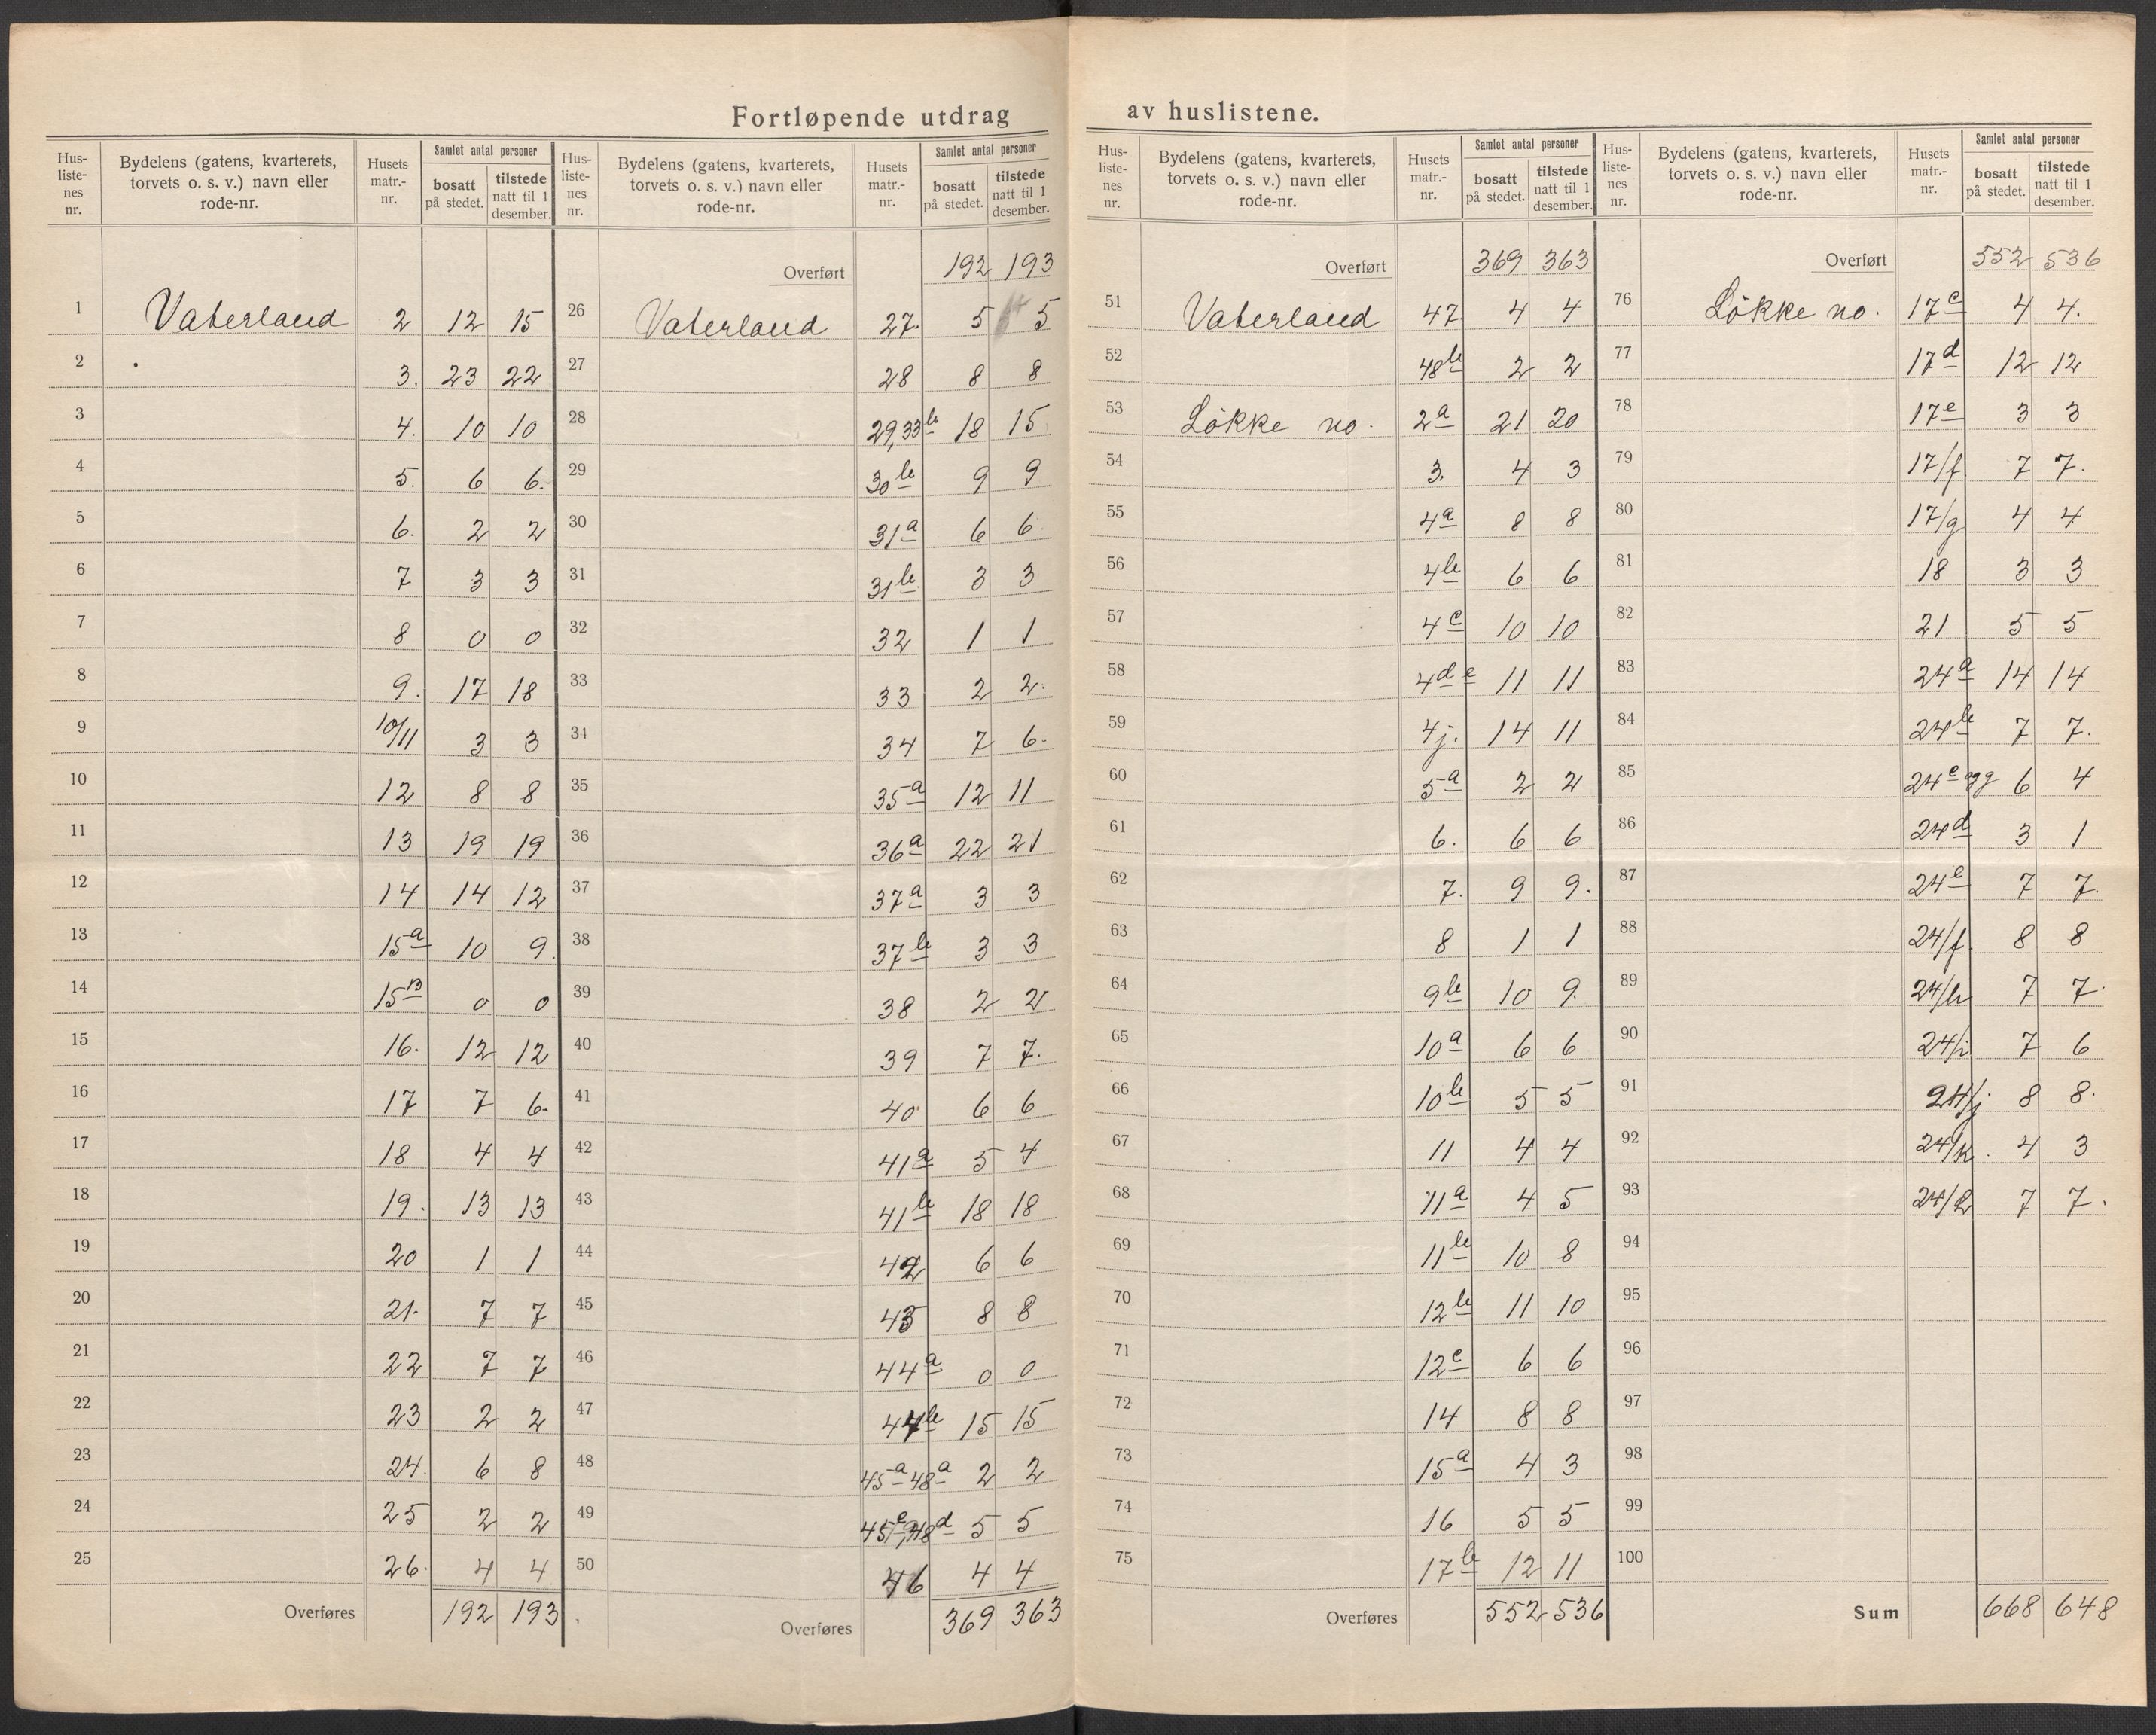 Fortløpende utdrag av huslistene.
Hus-listenes nr. | Bydelens (gatens, kvarterets, torvets o. s. v.) navn eller rode-nr. | Husets matr.-nr. | Samlet antal personer | bosatt på stedet. | tilstede natt til 1 desember.
1 Vaterland 2 12 15
2 3. 23 22
3 4. 10 10
4 5. 6 6.
5 6. 2 2
6 7 3 3
7 8 0 0
8 9. 17 18
9 10/11 3 3
10 12 8 8
11 13 19 19
12 14 14 12
13 15a 10 9.
14 15B 0 0
15 16. 12 12
16 17 7 6.
17 18 4 4
18 19. 13 13
19 20 1 1
20 21. 7 7
21 22 7 7
22 23 2 2
23 24. 6 8
24 25 2 2
25 26. 4 4
Overføres 192 193
Hus-listenes nr. | Bydelens (gatens, kvarterets, torvets o. s. v.) navn eller rode-nr. | Husets matr.-nr. | Samlet antal personer | bosatt på stedet. | tilstede natt til 1 desember.
Overført 192 193
26 Vaterland 27. 5 5
27 28 8 8
28 29,33b 18 15
29 30b 9 9
30 31a 6 6
31 31b 3 3
32 32 1 1
33 33 2 2.
34 34 7 6.
35 35a 12 11
36 36a 22 21
37 37a 3 3
38 37b 3 3
39 38 2 2
40 39 7 7.
41 40 6 6
42 41a 5 4
43 41b 18 18
44 42 6 6
45 43 8 8
46 44a 0 0
47 44b 15 15
48 45a 48a 2 2
49 45c,48d 5 5
50 46 4 4
Overføres 369 363
Hus-listenes nr. | Bydelens (gatens, kvarterets, torvets o. s. v.) navn eller rode-nr. | Husets matr.-nr. | Samlet antal personer | bosatt på stedet. | tilstede natt til 1 desember.
Overført 369 363
51 Vaterland 47 4 4
52 48b 2 2
53 Løkke no. 2a 21 20
54 3. 4 3
55 4a 8 8
56 4b 6 6
57 4c 10 10
58 4d e 11 11
59 4j. 14 11
60 5a 2 2
61 6. 6 6
62 7. 9 9.
63 8 1 1
64 9b 10 9.
65 10a 6 6
66 10b 5 5
67 11 4 4
68 11a 4 5
69 11b 10 8
70 12b 11 10
71 12c 6 6
72 14 8 8
73 15a 4 3
74 16 5 5
75 17b 12 11
Overføres 552 536
Hus-listenes nr. | Bydelens (gatens, kvarterets, torvets o. s. v.) navn eller rode-nr. | Husets matr.-nr. | Samlet antal personer | bosatt på stedet. | tilstede natt til 1 desember.
Overført 552 536
76 Løkke no. 17c 4 4.
77 17d 12 12
78 17e 3 3
79 17/f 7 7.
80 17/g 4 4
81 18 3 3
82 21 5 5
83 24a 14 14
84 24b 7 7.
85 24c og g 6 4
86 24d 3 1
87 24e 7 7.
88 24/f. 8 8
89 24/h 7 7.
90 24/i 7 6
91 24/j 8 8.
92 24/k. 4 3
93 24/l 7 7.
94
95
96
97
98
99
100
Sum 668 648